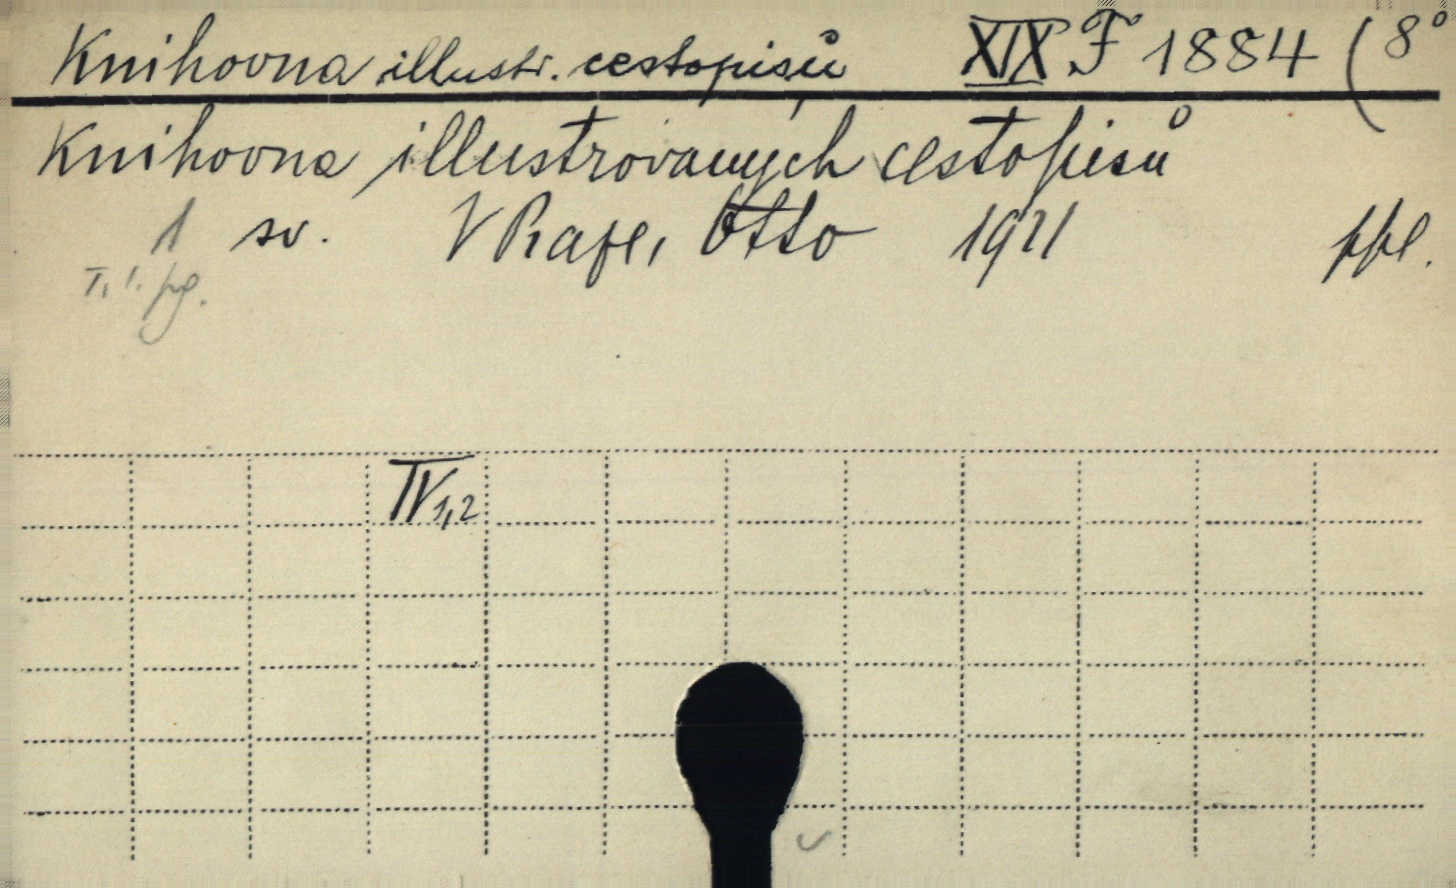 Knihovna illustr. cestopisů XIX F 1884 (8°
Knihovna illustrovaných cestopisů
1 sv. V Praze, Otto 1911 ppl.
IV 1,2